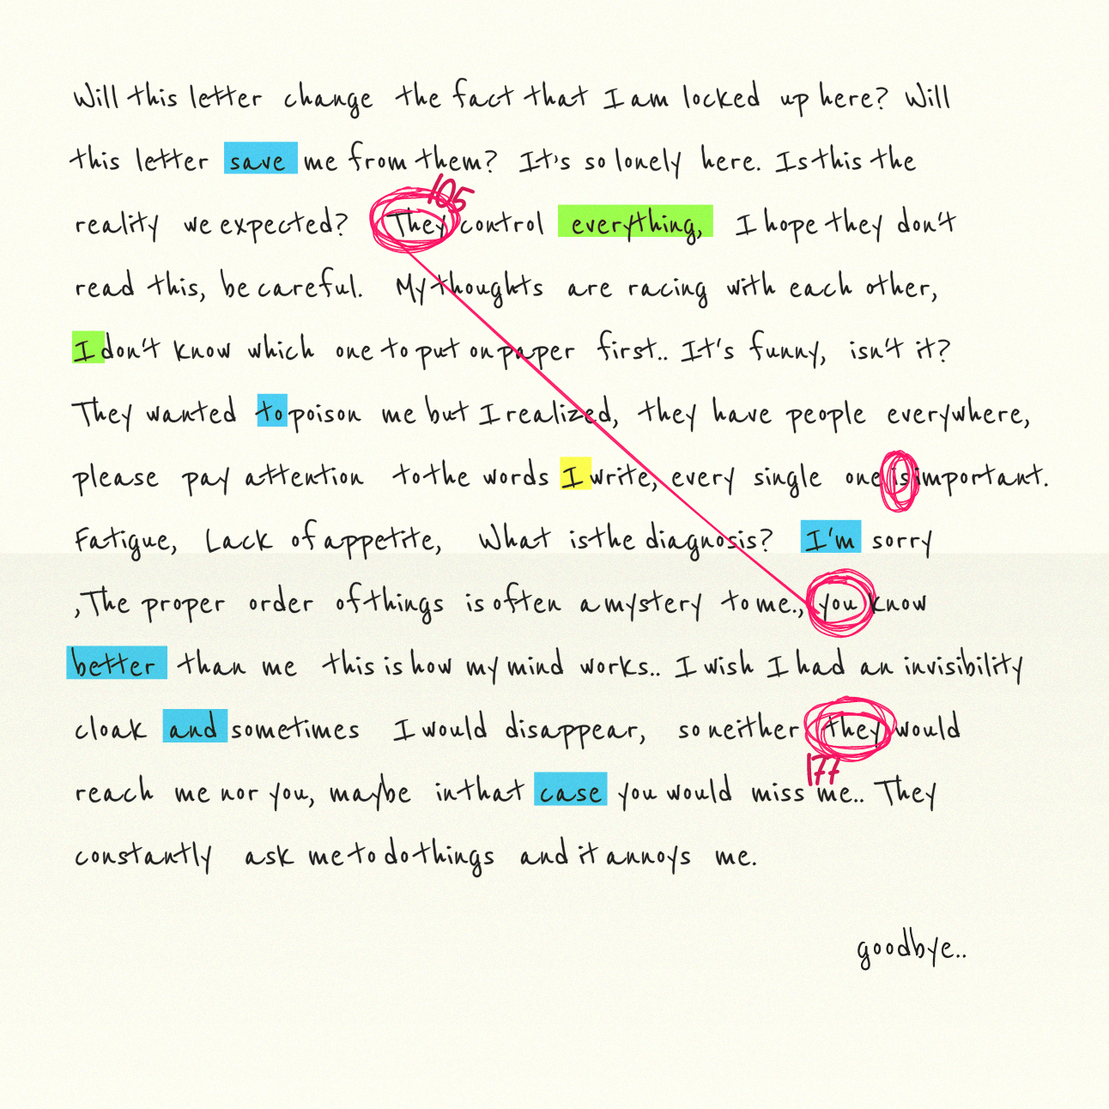 Will this letter change the fact that I am locked up here? Will
this letter save me from them? It's so lonely here. Is this the
105
reality we expected? They control everything, I hope they don't
read this, be careful. My thoughts are racing with each other,
I don't know which one to put on paper first.. It's funny, isn't it?
They wanted to poison me but I realized, they have people everywhere,
please pay attention to the words I write, every single one is important.
Fatigue, Lack of appetite, What is the diagnosis? I'm sorry
,The proper order of things is often a mystery to me., you know
better than me this is how my mind works.. I wish I had an invisibility
cloak and sometimes I would disappear, so neither they would
177
reach me nor you, maybe in that case you would miss me.. They
constantly ask me to do things and it annoys me.
goodbye..